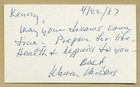 Kenny, 4/22/87
May your dreams come
true. Prepare for life.
Health & happiness to you
Best,
Warren